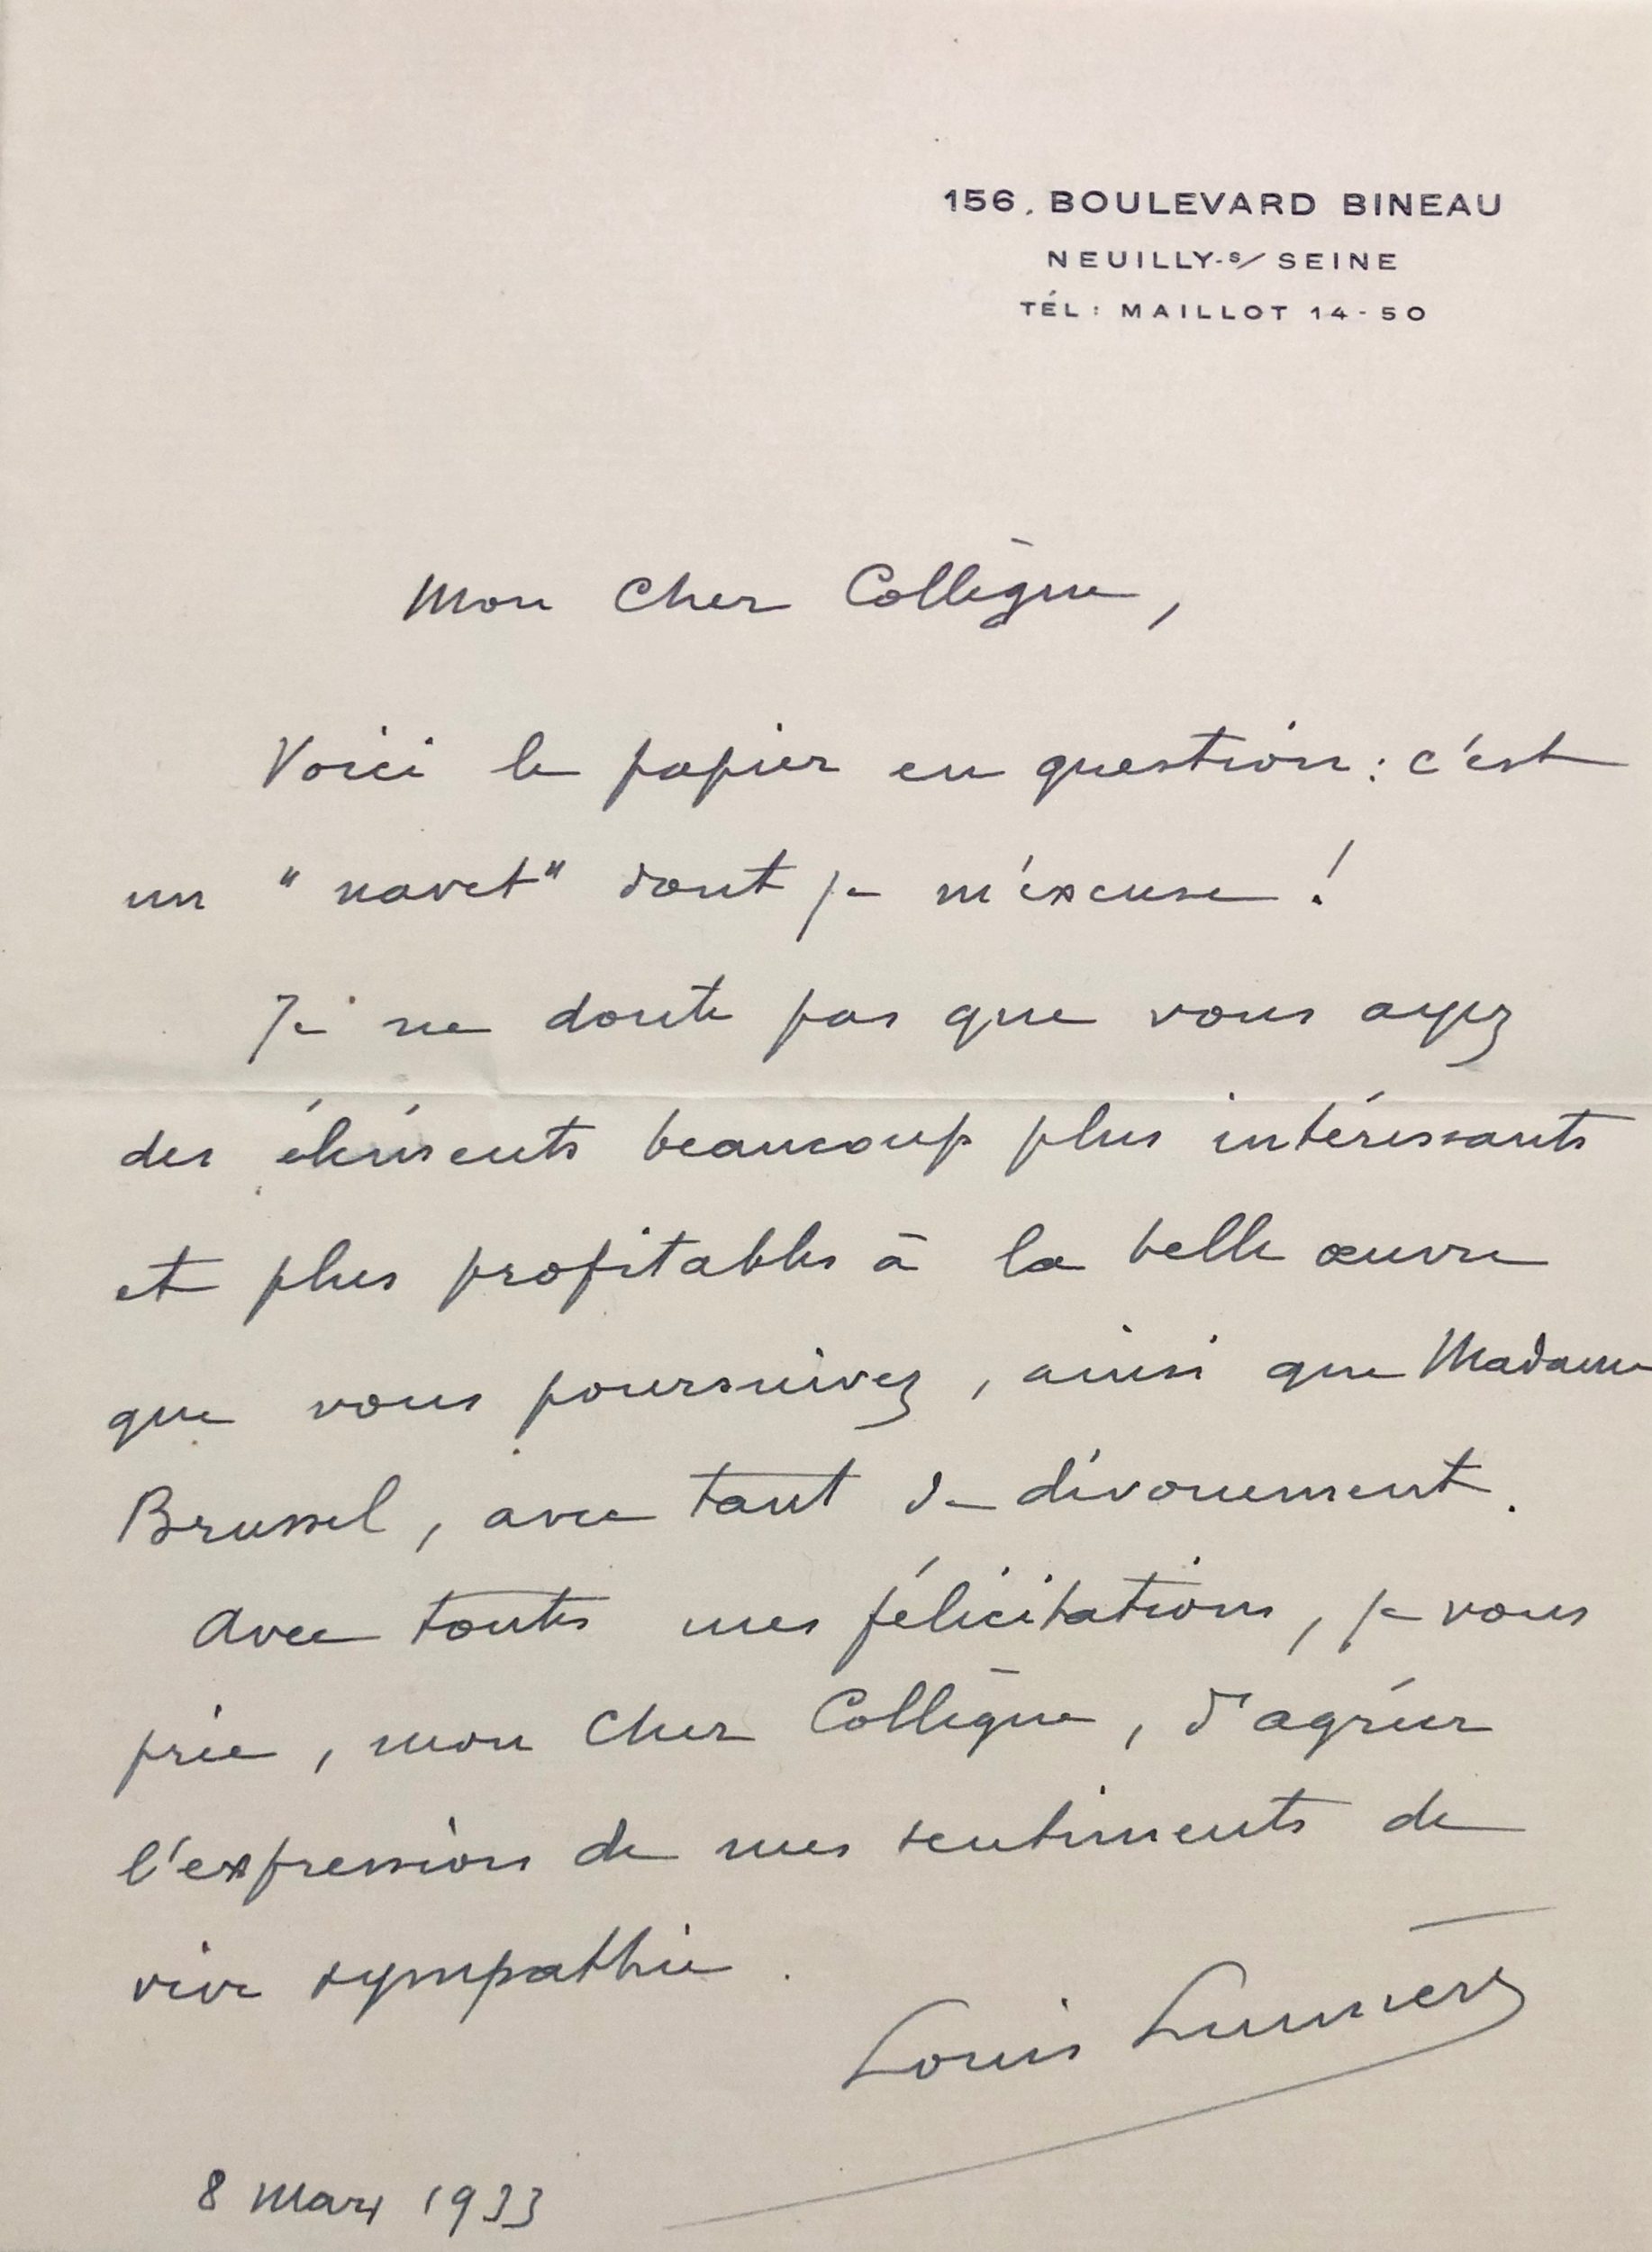 156, BOULEVARD BINEAU
NEUILLY-S/ SEINE
TÉL : MAILLOT 14-50
Mon Cher Collègue,
Voici le papier en question : c'est
un "navet" dont je m'excuse !
Je ne doute pas que vous ayez
des éléments beaucoup plus intéressants
et plus profitables à la belle œuvre
que vous poursuivez, ainsi que Madame
Brussel, avec tant de dévouement.
Avec toutes mes félicitations, je vous
prie, mon Cher Collègue, d'agréer
l'expression de mes sentiments de
vive sympathie.
Louis Lumière
8 Mars 1933